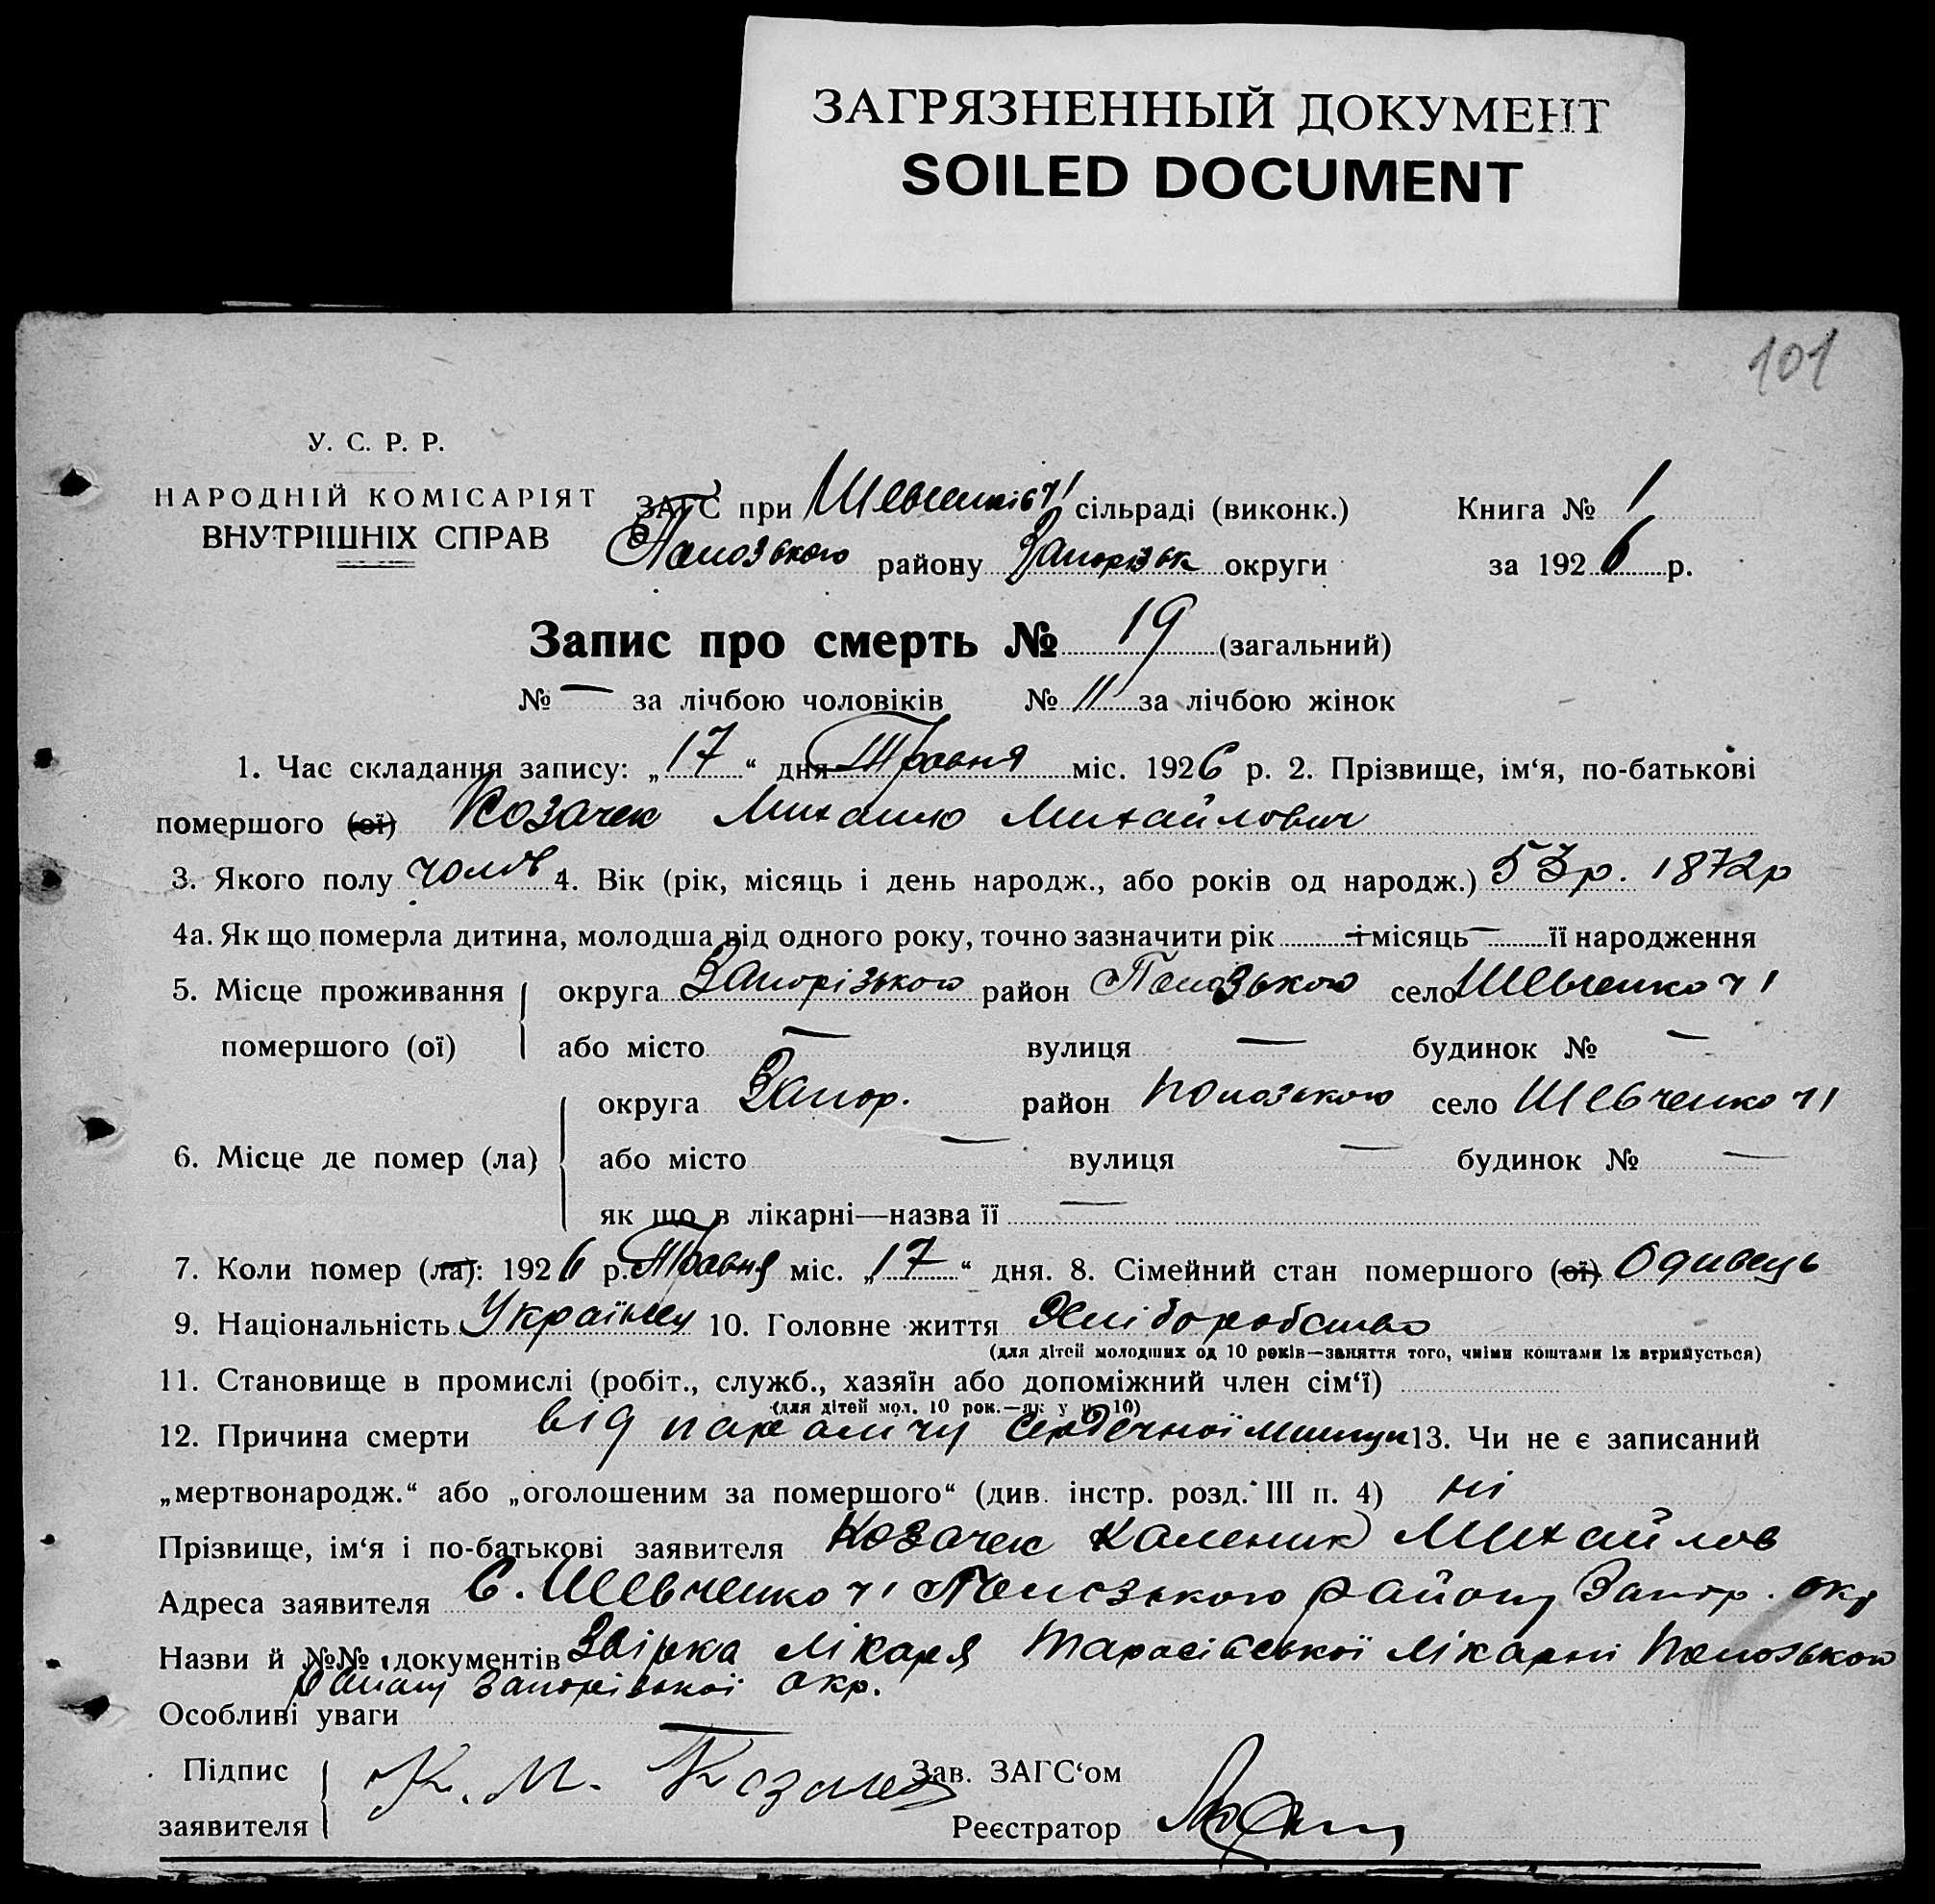 ЗАГРЯЗНЕННЫЙ ДОКУМЕНТ
SOILED DOCUMENT
101
У. С. Р. Р.
НАРОДНІЙ КОМІСАРІЯТ
ВНУТРІШНІХ СПРАВ
ЗАГС при сільраді (виконк.) Книга № 1
району Запорізьк округи за 1926 р.
Запис про смерть № 19 (загальний)
№ — за лічбою чоловіків № 11 за лічбою жінок
1. Час складання запису: „17“ дня Травня міс. 1926 р. 2. Прізвище, ім‘я, по-батькові
помершого (ої) Козачек Михайло Михайлович
3. Якого полу чолов 4. Вік (рік, місяць і день народж., або років од народж.) 53 р. 1872 р
4а. Як що померла дитина, молодша від одного року, точно зазначити рік — і місяць — її народження
5. Місце проживання округа Запорізького район село Шевченко 1
помершого (ої) або місто — вулиця — будинок № —
округа Запор. район Полозького село Шевченко 1
6. Місце де помер (ла) або місто — вулиця — будинок № —
як що в лікарні—назва її —
7. Коли помер (ла): 1926 р. Травня міс. „17“ дня. 8. Сімейний стан помершого (ої) Одивець
9. Національність Українец 10. Головне життя Хліборобство
(для дітей молодших од 10 років—заняття того, чиїми коштами їх втримується)
11. Становище в промислі (робіт., служб., хазяїн або допоміжний член сім‘ї)
(для дітей мол. 10 рок.—як у п. 10)
12. Причина смерти від паралічу сердечної мишци 13. Чи не є записаний
„мертвонародж.“ або „оголошеним за помершого“ (див. інстр. розд. III п. 4) ні
Прізвище, ім‘я і по-батькові заявителя Козачек Каленик Михайлов
Адреса заявителя С. Шевченко 1 Полозького району Запор. окр
Назви й №№ документів лікаря Тарасівської лікарні Пологського
району Запорізької окр.
Особливі уваги
Підпис К. М. Козачек Зав. ЗАГС‘ом
заявителя Реєстратор